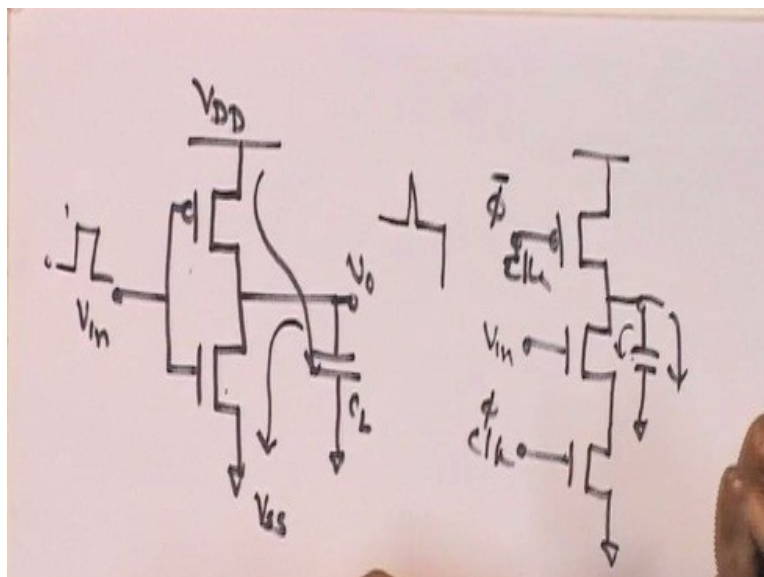 VDD
Vin
Vo
CL
VSS
ϕ̄
clk
Vin
ϕ
clk